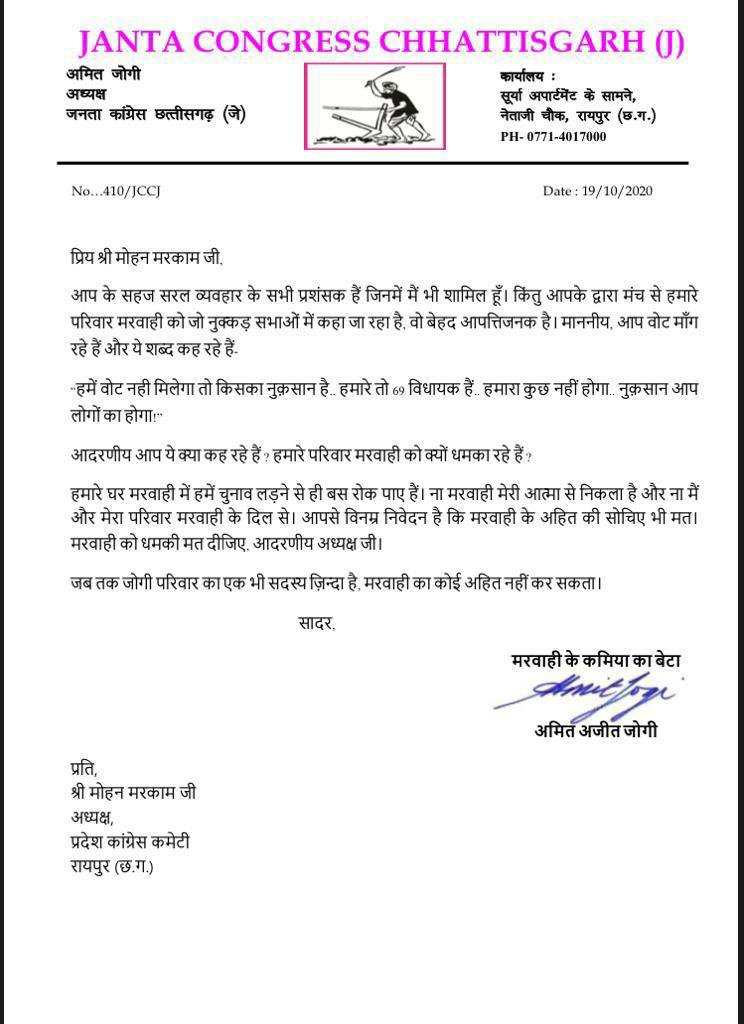 JANTA CONGRESS CHHATTISGARH (J)
अमित जोगी
अध्यक्ष
जनता कांग्रेस छत्तीसगढ़ (जे)
कार्यालय :
सूर्या अपार्टमेंट के सामने,
नेताजी चौक, रायपुर (छ.ग.)
PH- 0771-4017000
No...410/JCCJ
Date : 19/10/2020
प्रिय श्री मोहन मरकाम जी,
आप के सहज सरल व्यवहार के सभी प्रशंसक हैं जिनमें मैं भी शामिल हूँ। किंतु आपके द्वारा मंच से हमारे
परिवार मरवाही को जो नुक्कड़ सभाओं में कहा जा रहा है, वो बेहद आपत्तिजनक है। माननीय, आप वोट माँग
रहे हैं और ये शब्द कह रहे हैं-
"हमें वोट नही मिलेगा तो किसका नुक़सान है.. हमारे तो 69 विधायक हैं.. हमारा कुछ नहीं होगा.. नुक़सान आप
लोगों का होगा!"
आदरणीय आप ये क्या कह रहे हैं ? हमारे परिवार मरवाही को क्यों धमका रहे हैं ?
हमारे घर मरवाही में हमें चुनाव लड़ने से ही बस रोक पाए हैं। ना मरवाही मेरी आत्मा से निकला है और ना मैं
और मेरा परिवार मरवाही के दिल से। आपसे विनम्र निवेदन है कि मरवाही के अहित की सोचिए भी मत।
मरवाही को धमकी मत दीजिए, आदरणीय अध्यक्ष जी।
जब तक जोगी परिवार का एक भी सदस्य ज़िन्दा है, मरवाही का कोई अहित नहीं कर सकता।
सादर,
मरवाही के कमिया का बेटा
Amit Jogi
अमित अजीत जोगी
प्रति,
श्री मोहन मरकाम जी
अध्यक्ष,
प्रदेश कांग्रेस कमेटी
रायपुर (छ.ग.)